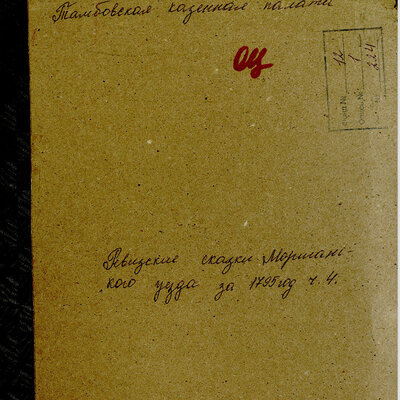 Тамбовская казенная палата
ОЦ
Фонд № 12
Опись № 1
224
Ревизские сказки Моршанс-
кого уезда за 1795 год ч. 4.